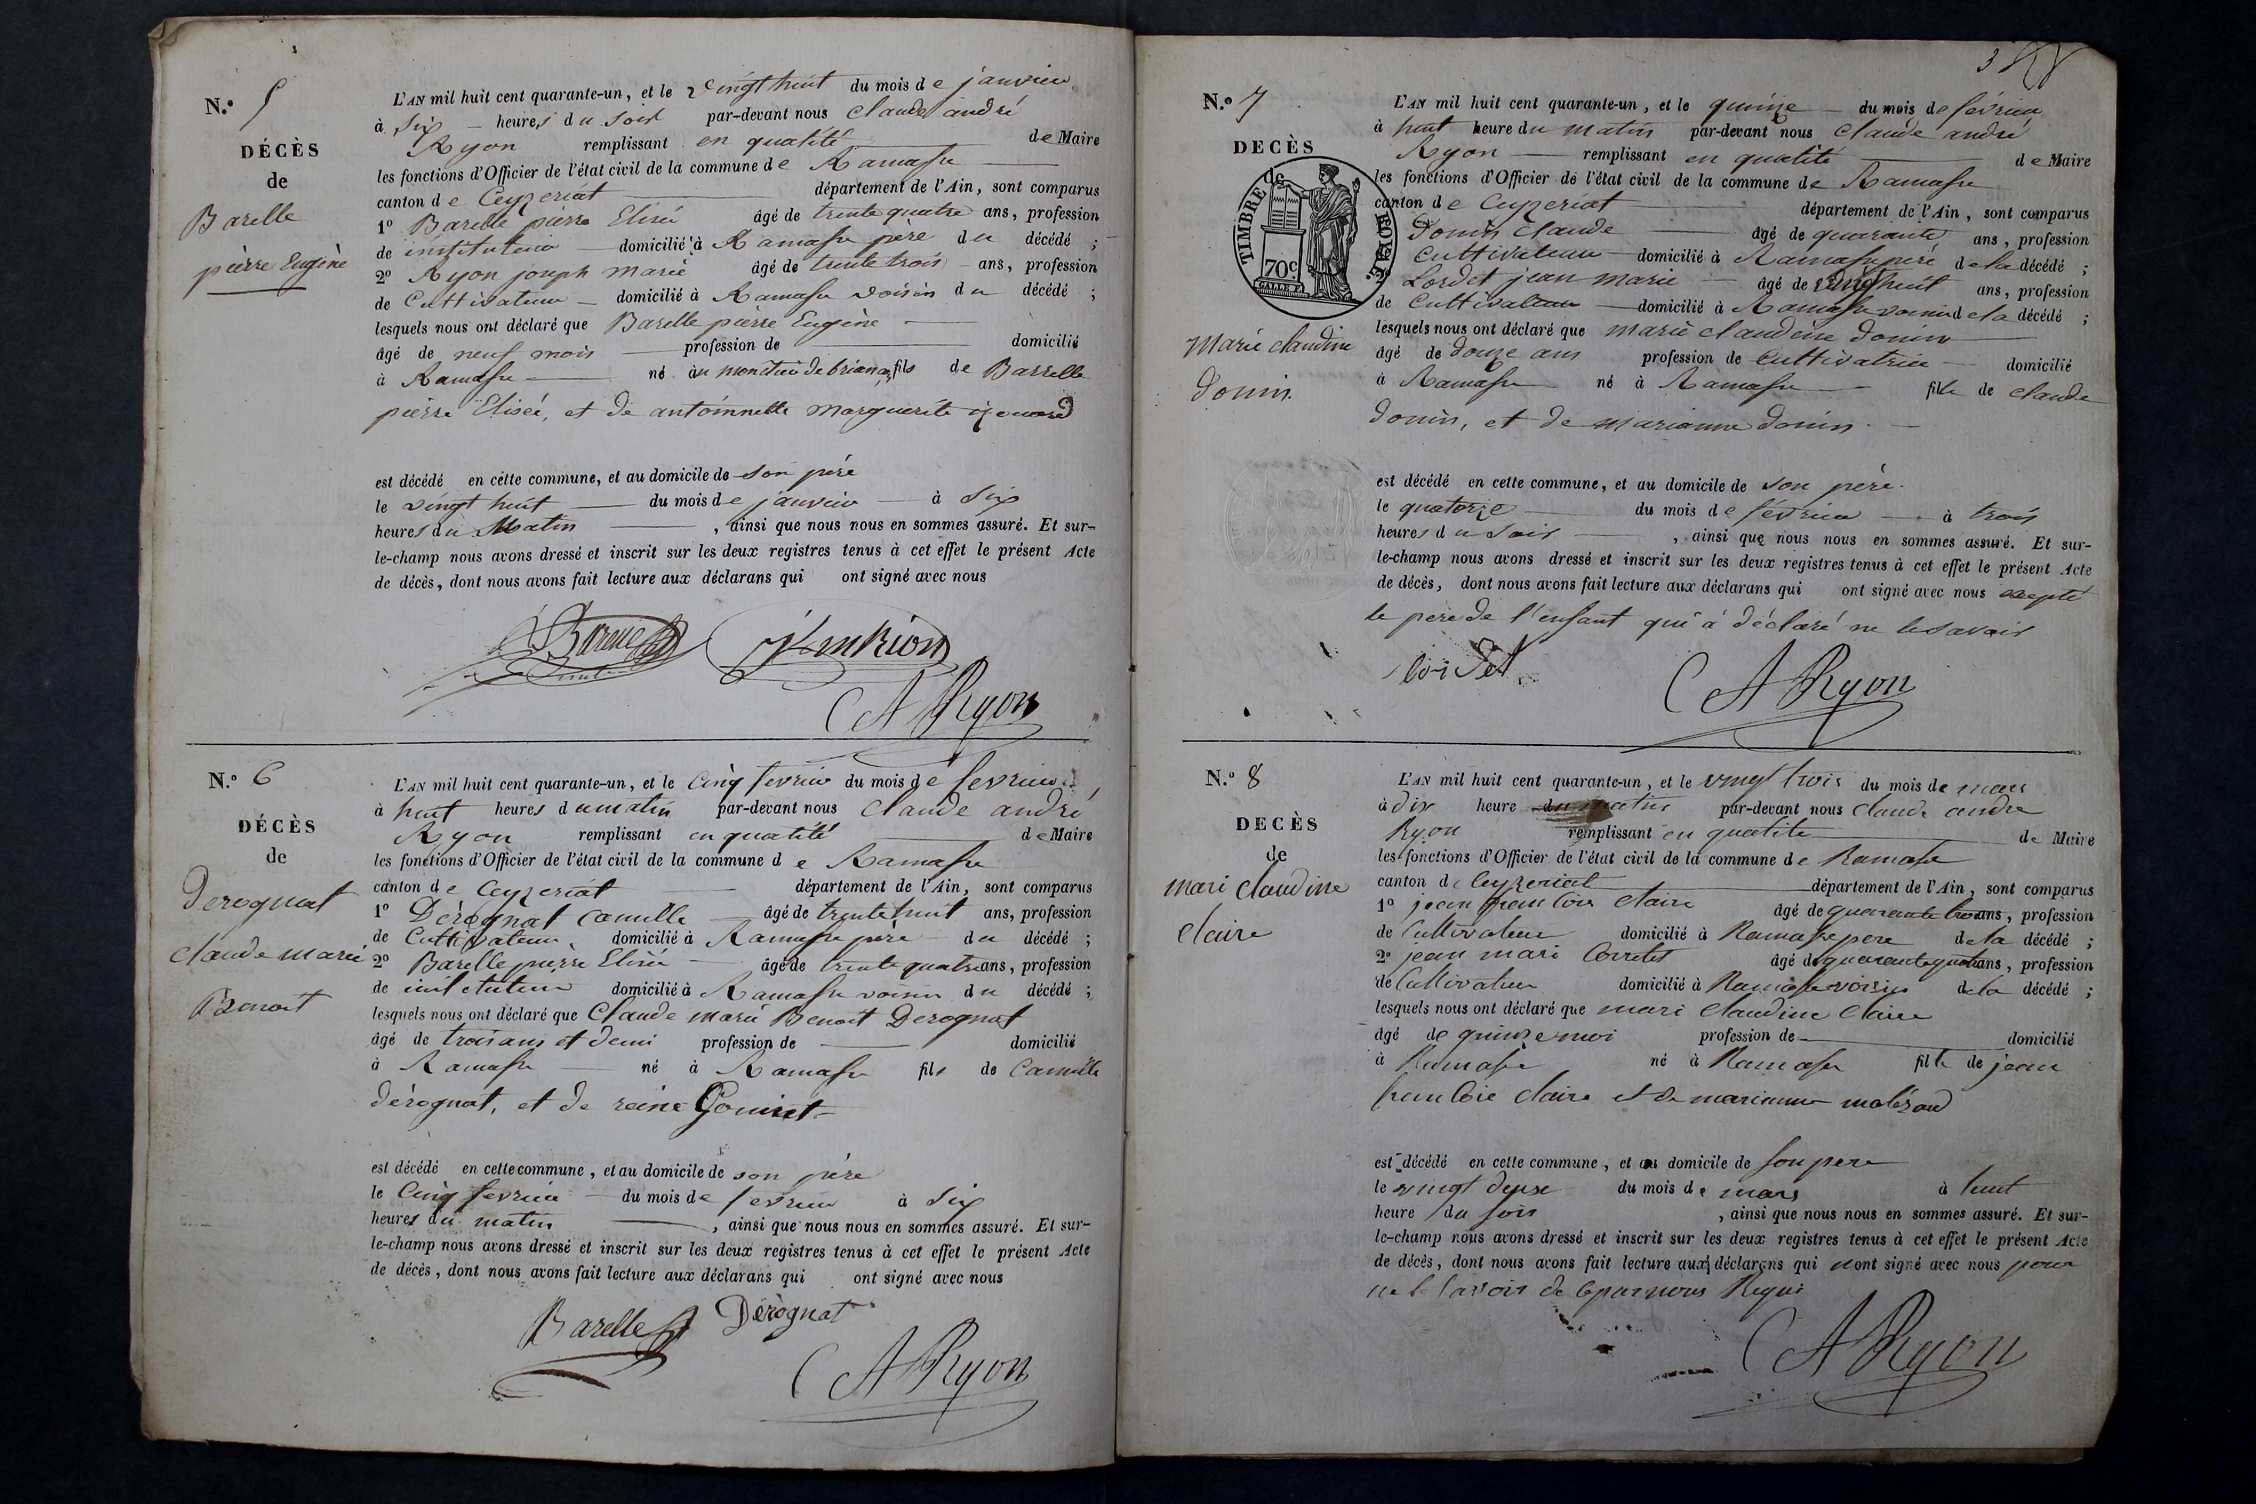 N.º 5
DÉCÈS
de
Barelle
pièrre Eugène
L'AN mil huit cent quarante-un, et le vingt huit du mois de janvier
à six heures du soir par-devant nous Claude andré
Ryon remplissant en qualité de Maire
les fonctions d'Officier de l'état civil de la commune de Ramasse
canton de Ceyzeriat département de l'Ain, sont comparus
1º Barelle pièrre Elisée âgé de trente quatre ans, profession
de instituteur domicilié à Ramasse père du décédé ;
2º Ryon joseph marie âgé de trente trois ans, profession
de Cultivateur domicilié à Ramasse voisin du décédé ;
lesquels nous ont déclaré que Barelle pièrre Eugène
âgé de neuf mois profession de domicilié
à Ramasse né au fils de Barrelle
pièrre Eliseé, et de antoinnette marguerite
est décédé en cette commune, et au domicile de son père
le vingt huit du mois de janvier à six
heures du Matin , ainsi que nous nous en sommes assuré. Et sur-
le-champ nous avons dressé et inscrit sur les deux registres tenus à cet effet le présent Acte
de décès, dont nous avons fait lecture aux déclarans qui ont signé avec nous
Barelle
A Ryon
N.º 6
DÉCÈS
de
Derognat
claude marie
Benoit
L'AN mil huit cent quarante-un, et le Cinq fevrier du mois de fevrier
à huit heures du matin par-devant nous Claude andré
Ryon remplissant en qualité de Maire
les fonctions d'Officier de l'état civil de la commune de Ramasse
canton de Ceyzeriat département de l'Ain, sont comparus
1º Dérognat Camille âgé de trente huit ans, profession
de Cultivateur domicilié à Ramasse père du décédé ;
2º Barelle pierre Elisée âgé de trente quatre ans, profession
de instituteur domicilié à Ramasse voisin du décédé ;
lesquels nous ont déclaré que Claude marie Benoit Derognat
âgé de trois ans et demi profession de domicilié
à Ramasse né à Ramasse fils de Camille
dérognat, et de reine Gouiret
est décédé en cette commune, et au domicile de son père
le Cinq fevrier du mois de fevrier à Six
heures du matin , ainsi que nous nous en sommes assuré. Et sur-
le-champ nous avons dressé et inscrit sur les deux registres tenus à cet effet le présent Acte
de décès, dont nous avons fait lecture aux déclarans qui ont signé avec nous
Barelle Dérognat
A Ryon
3
N.º 7
DECÈS
de
TIMBRE ROYAL
70c.
Marie claudine
donin
L'AN mil huit cent quarante-un, et le quinze du mois de février
à huit heure du matin par-devant nous claude andré
Ryon remplissant en qualité de Maire
les fonctions d'Officier de l'état civil de la commune de Ramasse
canton de Ceyzeriat département de l'Ain, sont comparus
donin Claude âgé de quarante ans, profession
Cultivateur domicilié à Ramasse peré de la décédé ;
Loidet jean marie âgé de vingt huit ans, profession
de Cultivateur domicilié à Ramasse voisin de la décédé ;
lesquels nous ont déclaré que marie claudine donin
âgé de douze ans profession de Cultivatrice domicilié
à Ramasse né à Ramasse fille de claude
donin, et de marianne donin.
est décédé en cette commune, et au domicile de son peré.
le quatorze du mois de février à trois
heures du soir , ainsi que nous nous en sommes assuré. Et sur-
le-champ nous avons dressé et inscrit sur les deux registres tenus à cet effet le présent Acte
de décès, dont nous avons fait lecture aux déclarans qui ont signé avec nous excepté
le père de l'enfant qui a déclaré ne le savoir
loi det
A Ryon
N.º 8
DECÈS
de
mari claudine
claire
L'AN mil huit cent quarante-un, et le vingt trois du mois de mars
à dix heure du matin par-devant nous Claude andre
Ryon remplissant en qualite de Maire
les fonctions d'Officier de l'état civil de la commune de Ramasse
canton de Ceyzeriat département de l'Ain, sont comparus
1º jean francois claire âgé de quarante trois ans, profession
de Cultivateur domicilié à Ramasse pere de la décédé ;
2º jean mari Corretet âgé de quarante quatre ans, profession
de Cultivateur domicilié à Ramasse voisin de la décédé ;
lesquels nous ont déclaré que mari Claudine Claire
âgé de quinze moi profession de domicilié
à Ramasse né à Ramasse fille de jean
francois claire et de marianne
est décédé en cette commune, et au domicile de son pere
le vingt deuse du mois de mars à huit
heure du soir , ainsi que nous nous en sommes assuré. Et sur-
le-champ nous avons dressé et inscrit sur les deux registres tenus à cet effet le présent Acte
de décès, dont nous avons fait lecture aux déclarans qui nont signé avec nous pour
ne le savoir de ce par nous Requi
A Ryon